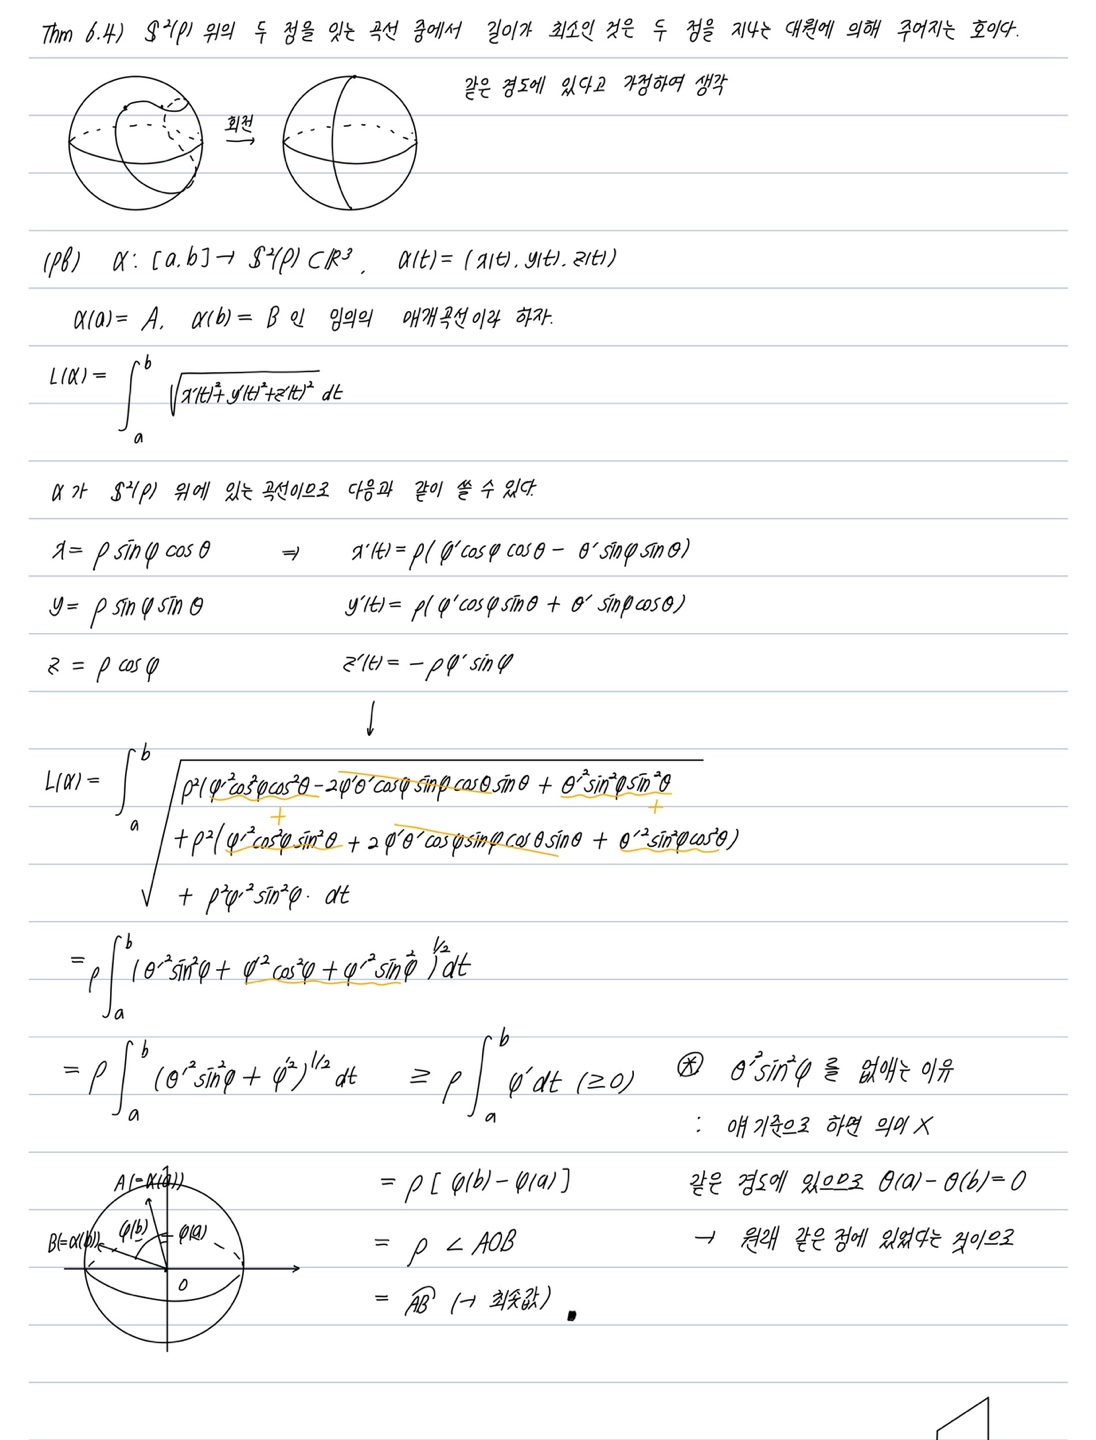 Thm 6.4) S²(ρ) 위의 두 점을 잇는 곡선 중에서 길이가 최소인 것은 두 점을 지나는 대원에 의해 주어지는 호이다.
같은 경도에 있다고 가정하여 생각
회전
(pf) α: [a,b] → S²(ρ) ⊂ ℝ³, α(t) = (x(t), y(t), z(t))
α(a) = A, α(b) = B 인 임의의 매개곡선이라 하자.
L(α) = ∫_a^b √(x'(t)²+y'(t)²+z'(t)²) dt
α가 S²(ρ) 위에 있는 곡선이므로 다음과 같이 쓸 수 있다.
x = ρ sinφ cosθ ⇒ x'(t) = ρ(φ'cosφ cosθ - θ'sinφ sinθ)
y = ρ sinφ sinθ y'(t) = ρ(φ'cosφ sinθ + θ' sinφ cosθ)
z = ρ cosφ z'(t) = -ρφ' sinφ
↓
L(α) = ∫_a^b √ρ²(φ'²cos²φcos²θ - 2φ'θ'cosφ sinφ cosθ sinθ + θ'²sin²φ sin²θ
+ +
+ ρ²(φ'²cos²φ sin²θ + 2φ'θ'cosφ sinφ cosθ sinθ + θ'²sin²φcos²θ)
+ ρ²φ'²sin²φ. dt
= ρ∫_a^b (θ'²sin²φ + φ'²cos²φ + φ'²sin²φ)^1/2 dt
= ρ∫_a^b (θ'²sin²φ + φ'²)^1/2 dt ≥ ρ∫_a^b φ'dt (≥0)
⊛ θ'²sin²φ를 없애는 이유
: 얘 기준으로 하면 의미 X
같은 경도에 있으므로 θ(a) - θ(b) = 0
→ 원래 같은 점에 있었다는 것이므로
= ρ[φ(b) - φ(a)]
= ρ∠AOB
= AB⌢ (→ 최솟값) ■
A(=α(a))
B(=α(b)) φ(b) φ(a)
O